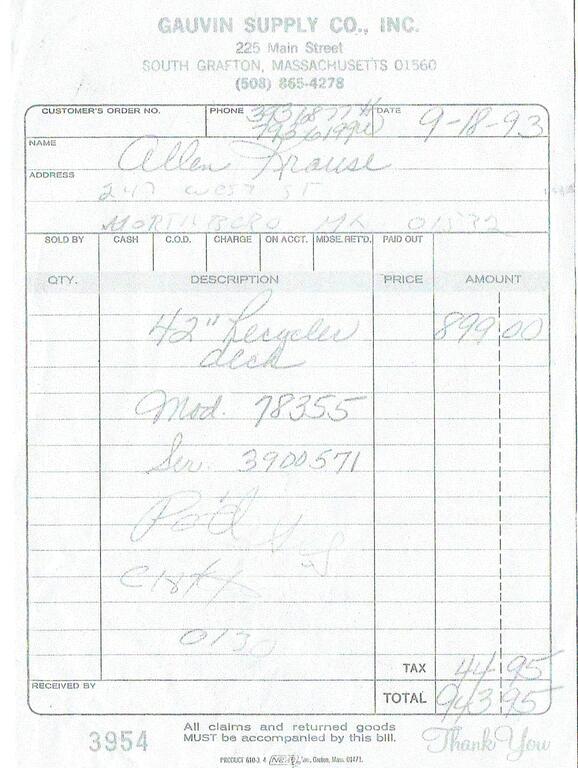 GAUVIN SUPPLY CO., INC.
225 Main Street
SOUTH GRAFTON, MASSACHUSETTS 01560
(508) 865-4278
CUSTOMER'S ORDER NO.
PHONE 393 6877 H
DATE 9-18-93
793 6199 W
NAME Allen Krause
ADDRESS
247 WEST ST
NORTHBORO MA 01532
SOLD BY CASH C.O.D. CHARGE ON ACCT. MDSE. RET'D. PAID OUT
QTY. DESCRIPTION PRICE AMOUNT
42" Recycler 899 00
deck
Mod. 78355
Ser. 3900571
Pd
0130
TAX 44 95
RECEIVED BY
TOTAL 943 95
3954
All claims and returned goods
MUST be accompanied by this bill.
Thank You
PRODUCT 610-3
Inc., Groton, Mass. 01471.